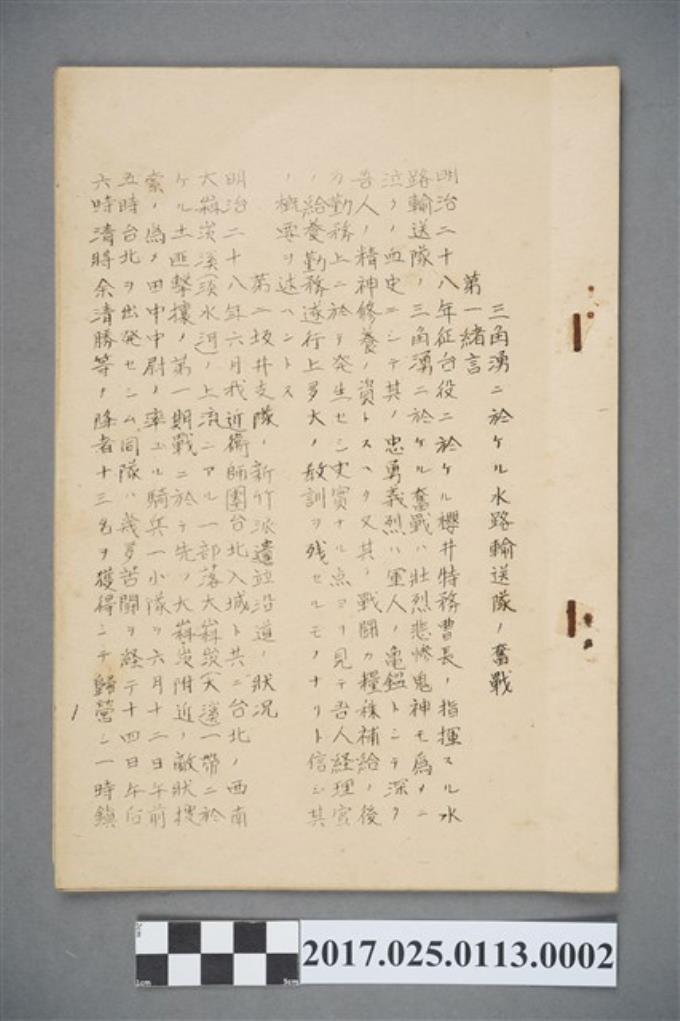 三角湧ニ於ケル水路輸送隊ノ奮戰
第一緒言
明治二十八年征台役ニ於ケル櫻井特務曹長ノ指揮スル水
路輸送隊ノ三角湧ニ於ケル奮戰ハ壯烈悲慘鬼神モ爲メニ
泣クノ血史ニシテ其ノ忠勇義烈ハ軍人ノ亀鑑トシテ深ク
吾人ノ精神修養ノ資トスヘク又其ノ戰闘カ糧秣補給ノ後
方勤務上ニ於テ発生セシ史實ナル点ヨリ見テ吾人経理官
ノ給養勤務遂行上多大ノ教訓ヲ残セルモノナリト信シ其
ノ概要ヲ述ヘントス
第二坂井支隊ノ新竹派遣竝沿道ノ狀況
明治二十八年六月我近衛師團台北入城ト共ニ台北ノ西南
大嵙崁溪(淡水河)ノ上流ニアル一部落大嵙崁(大溪)一帶ニ於
ケル土匪撃攘ノ第一期戰ニ於テ先ツ大嵙崁附近ノ敵狀捜
索ノ爲メ田中中尉ノ率ユル騎兵一小隊ヲ六月十二日午前
五時台北ヲ出発セシム同隊ハ幾多苦闘ヲ経テ十四日午后
六時清將余清勝等ノ降者十三名ヲ獲得シテ歸營シ一時鎮
1
2017.025.0113.0002